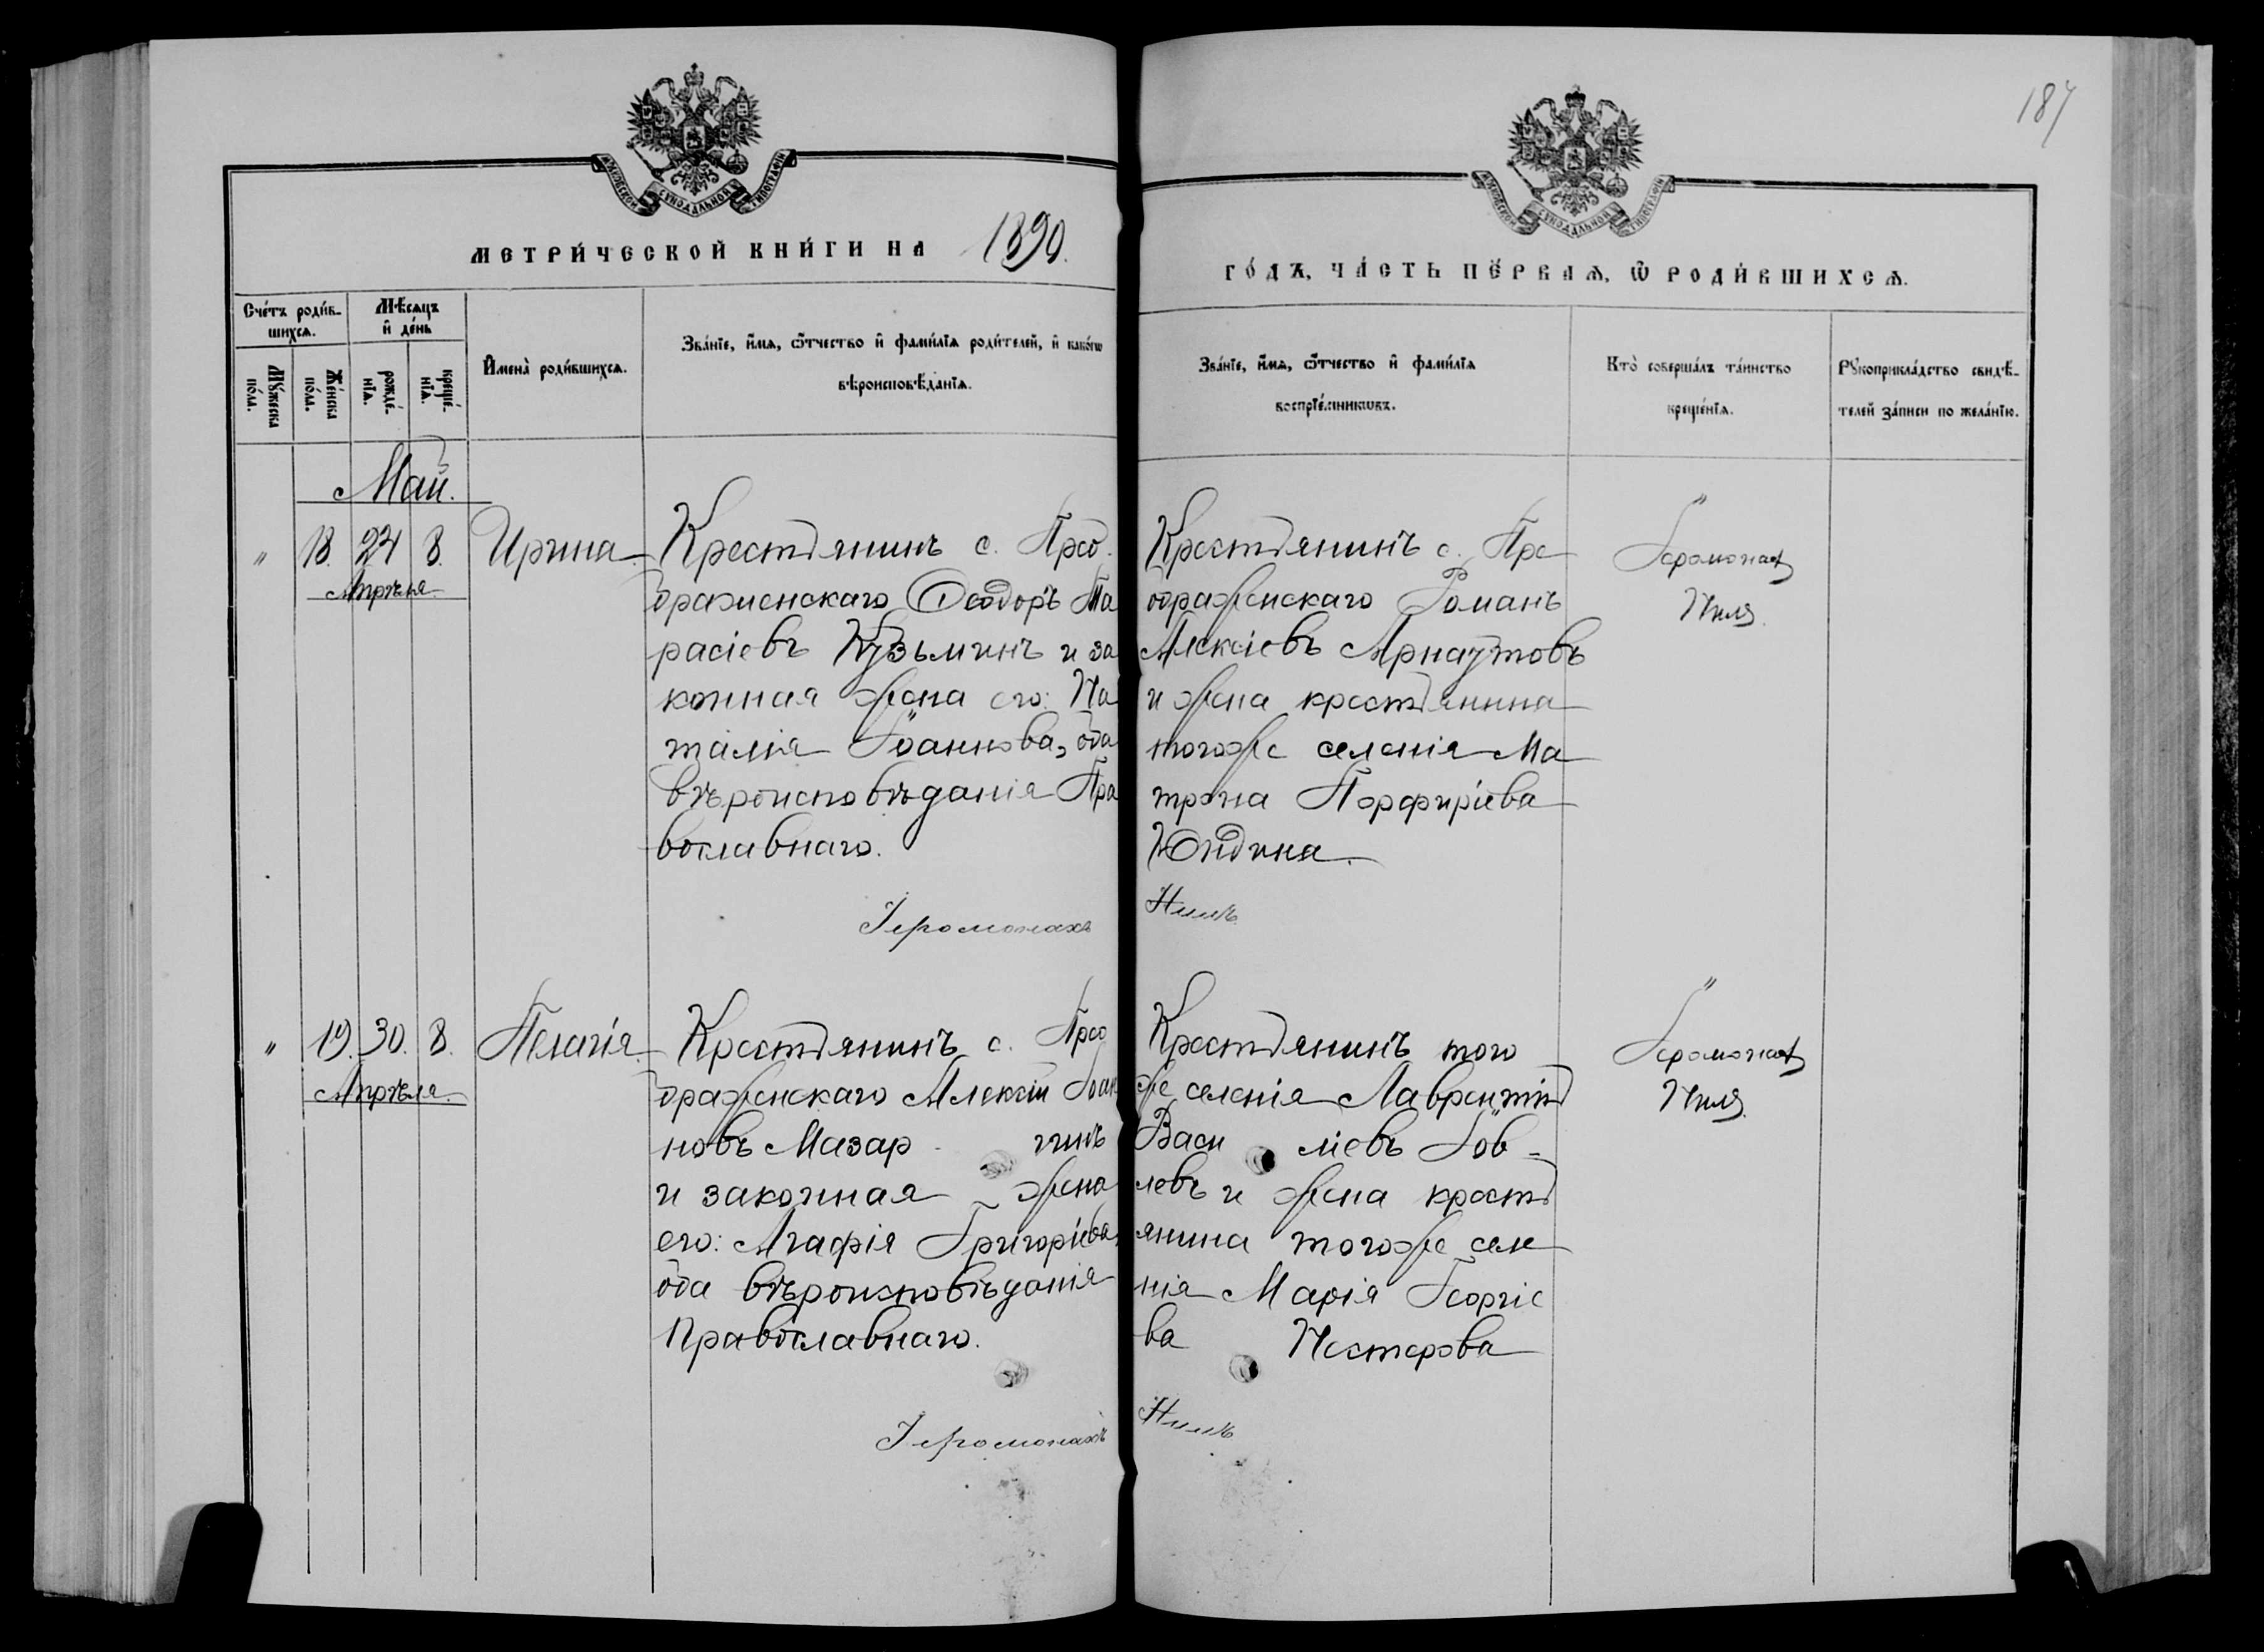 187
МОСКОВСКОЙ СѴНОДАЛЬНОЙ ТИПОГРАФІИ
МОСКОВСКОЙ СѴНОДАЛЬНОЙ ТИПОГРАФІИ
МЕТРИ́ЧЕСКОЙ КНИ́ГИ НА 1890.
ГО́ДЪ, ЧА́СТЬ ПЕ́РВАѦ, Ѡ҆ РОДИ́ВШИХСѦ.
Сче́тъ роди́в-
шихсѧ.
Мꙋ́жеска по́ла.
Же́нска по́ла.
Мѣ́сѧцъ
и҆ де́нь
рожде́-
нїѧ.
креще́-
нїѧ.
И҆мена̀ роди́вшихсѧ.
Зва́нїе, и҆́мѧ, ѻ҆́тчество и҆ фами́лїѧ роди́телей, и҆ како́гѡ
вѣроисповѣ́данїѧ.
Зва́нїе, и҆́мѧ, ѻ҆́тчество и҆ фами́лїѧ
воспрїе́мникѡвъ.
Кто̀ соверша́лъ та́инство
креще́нїѧ.
Рꙋкоприкла́дство свидѣ́-
телей за́писи по жела́нїю.
Май.
" 18. 24 8. Ирина
Апрѣля
Крестьянинъ с. Прео
браженскаго Ѳеодоръ Та
расіевъ Кузьминъ и за
конная жена его: На
талія Іоаннова, оба
вѣроисповѣданія Пра
вославнаго.
Крестьянинъ с. Пре
ображенскаго Романъ
Алексіевъ Арнаутовъ
и жена крестьянина
тогоже селенія Ма
трона Порфиріева
Юдина.
Іеромонах
Нилъ
Іеромонахъ Нилъ
" 19. 30. 8. Пелагія
Апрѣля.
Крестьянинъ с. Прео
браженскаго Алексій Іоан
новъ Мазар гинъ
и законная жена
его: Агафія Григоріева,
оба вѣроисповѣданія
Православнаго.
Крестьянинъ того
же селенія Лаврентій
Васи ліевъ Іов-
левъ и жена кресть
янина тогоже селе
нія Марія Георгіе
ва Нестерова
Іеромонах
Нилъ
Іеромонахъ Нилъ